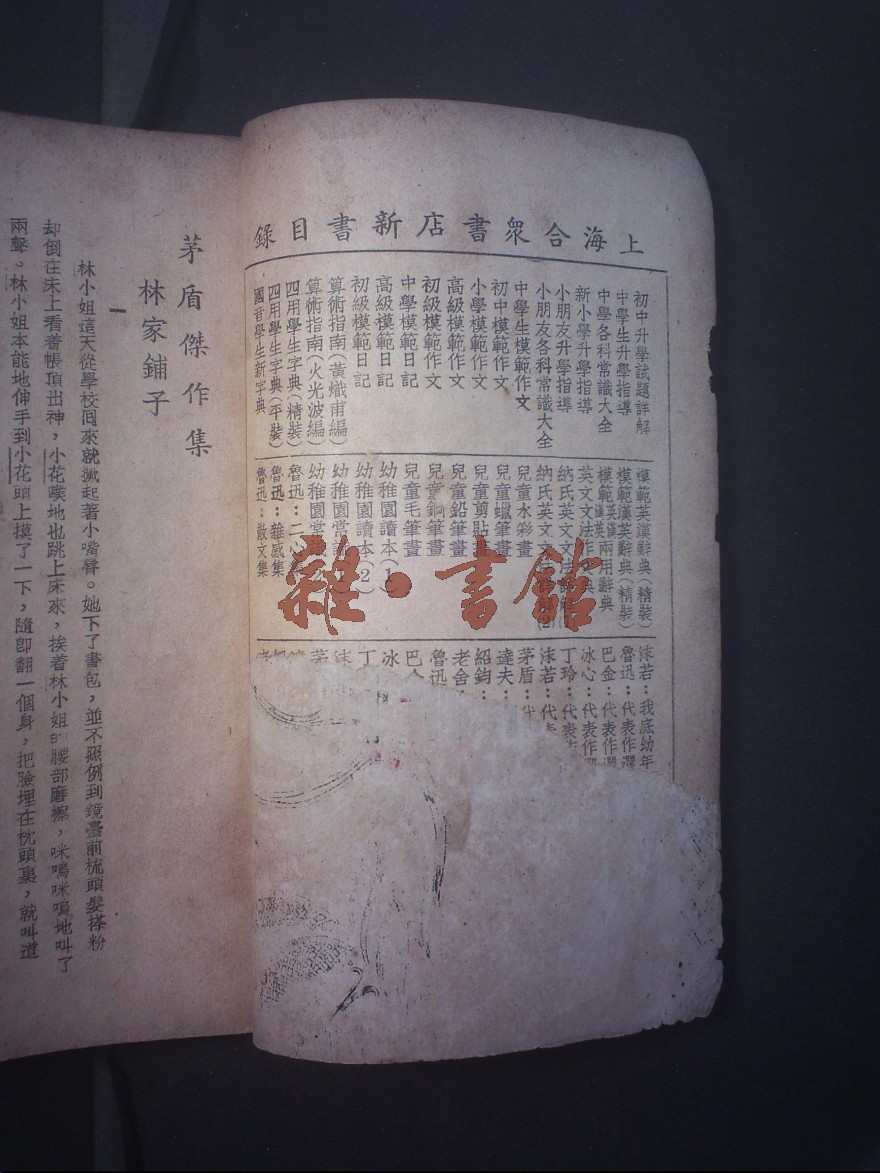 上海合衆書店新書目錄
初中升學試題詳解
中學生升學指導
中學各科常識大全
新小學升學指導
小朋友升學指導
小朋友各科常識大全
中學生模範作文
初中模範作文
小學模範作文
高級模範作文
初級模範作文
中學模範日記
高級模範日記
初級模範日記
算術指南(黃熾甫編)
算術指南(火光波編)
四用學生字典(精裝)
四用學生字典(平裝)
國音學生新字典
模範英漢辭典(精裝)
模範漢英辭典(精裝)
模範英漢漢英兩用辭典
英文文法作文典
納氏英文文法
納氏英文文法
兒童水彩畫
兒童蠟筆畫
兒童剪貼畫
兒童鉛筆畫
兒童鋼筆畫
兒童毛筆畫
幼稚園讀本(1)
幼稚園讀本(2)
幼稚園常識
幼稚園常識
魯迅:二心集
魯迅:雜感集
魯迅:散文集
沫若:我底幼年
魯迅:代表作選
巴金:代表作選
冰心:代表作選
丁玲:代表作
沫若:代表
茅盾:代
達夫:
紹鈞:
老舍
魯迅
巴
冰
丁
沫
茅
茅盾傑作集
林家鋪子
一
林小姐這天從學校囘來就撅起著小嘴脣。她下了書包,並不照例到鏡臺前梳頭髮搽粉
却倒在床上看着帳頂出神,小花噗地也跳上床來,挨着林小姐的腰部磨擦,咪嗚咪嗚地叫了
兩聲。林小姐本能地伸手到小花頭上摸了一下,隨卽翻一個身,把臉埋在枕頭裏,就叫道
雜·書館